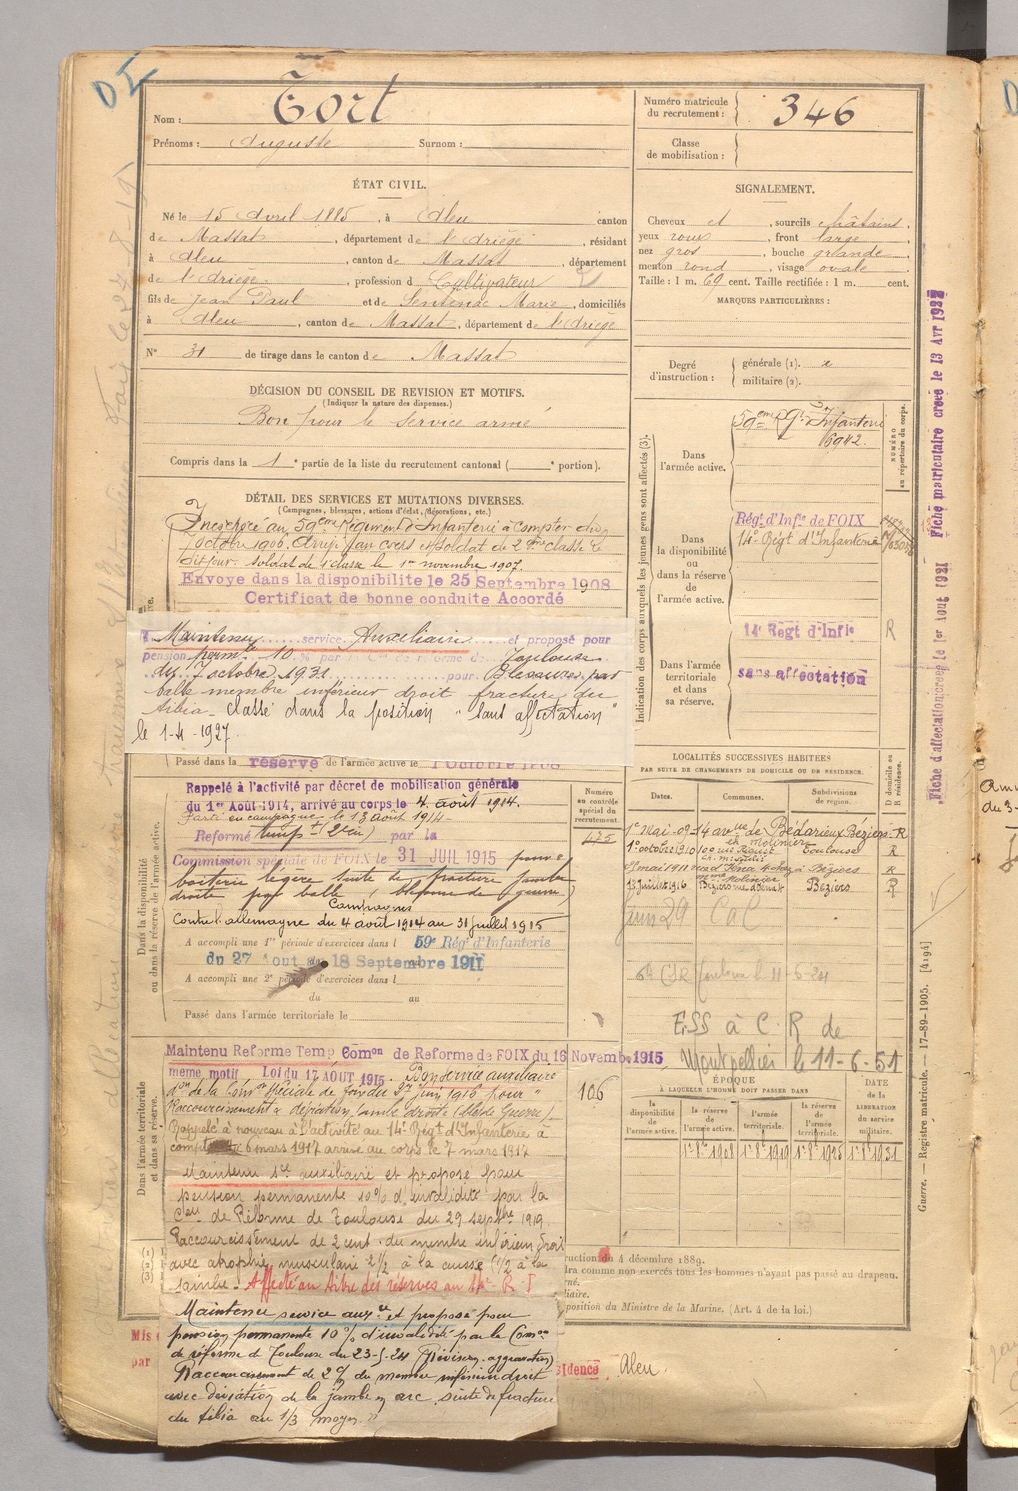 DI
Nom : Tort
Prénoms : Auguste Surnom :
Numéro matricule du recrutement : 346
Classe de mobilisation :
ÉTAT CIVIL.
Né le 15 Avril 1885, à Aleu canton
de Massat, département de l'Ariège, résidant
à Aleu, canton de Massat, département
de l'Ariège, profession de Cultivateur
fils de Jean Paul et de Sentenac Marie, domiciliés
à Aleu, canton de Massat, département de l'Ariège
N° 31 de tirage dans le canton de Massat
SIGNALEMENT.
Cheveux et, sourcils châtains,
yeux roux, front large,
nez gros, bouche grande,
menton rond, visage ovale
Taille : 1 m. 69 cent. Taille rectifiée : 1 m. cent.
MARQUES PARTICULIÈRES :
Degré d'instruction : générale (1). 2
militaire (2).
DÉCISION DU CONSEIL DE REVISION ET MOTIFS.
(Indiquer la nature des dispenses.)
Bon pour le service armé
Compris dans la 1e partie de la liste du recrutement cantonal ( e portion).
DÉTAIL DES SERVICES ET MUTATIONS DIVERSES.
(Campagnes, blessures, actions d'éclat, décorations, etc.)
Incorporé au 59eme Régiment d'Infanterie à compter du
7 octobre 1906. Arrivé au corps et soldat de 2eme classe le
dit jour. soldat de 1e classe le 1er novembre 1907.
Envoyé dans la disponibilité le 25 Septembre 1908
Certificat de bonne conduite Accordé
Maintenu service Auxiliaire et proposé pour
pension permte 10 % par la Con de réforme de Toulouse
du 7 octobre 1931 pour Blessures par
balle membre inférieur droit fracture du
tibia - Classé dans la position "sans affectation"
le 1-4-1927
Passé dans la réserve de l'armée active le 1 Octobre 1908
Rappelé à l'activité par décret de mobilisation générale
du 1er Août 1914, arrivé au corps le 4 août 1914.
Parti en campagne le 13 août 1914
Réformé temp. par la
Commission spéciale de FOIX le 31 JUIL 1915 pour
boiterie légère suite de fracture jambe
droite par balle (blessure de guerre)
Campagnes
Contre l'allemagne du 4 août 1914 au 31 juillet 1915
A accompli une 1re période d'exercices dans l 59e Régt d'Infanterie
du 27 Aout au 18 Septembre 1911
A accompli une 2e période d'exercices dans l
du au
Passé dans l'armée territoriale le
Maintenu Réformé Temp Comon de Réforme de FOIX du 16 Novemb 1915
meme motif Loi du 17 AOUT 1915. Bon service auxiliaire
Don de la Comon spéciale de Foix du 27 juin 1916 pour "
Raccourcissement & déviation jambe droite (bles de guerre)
Rappelé à nouveau à l'activité au 14e Régt d'Infanterie à
compter du 6 mars 1917 arrivé au corps le 7 mars 1917
Maintenu sce auxiliaire et proposé pour
pension permanente 10% d'invalidité par la
Con de Réforme de Toulouse du 29 septbre 1919
Raccourcissement de 2 cent. du membre inférieur droit
avec atrophie musculaire 2 1/2 à la cuisse (1/2 à la
jambe. Affecté au titre des réserves au
Maintenu service auxre et proposé pour
pension permanente 10% d'invalidité par la Comon
de réforme de Toulouse du 23-5-24 (Révision aggravation)
Raccourcissement de 2 c/ du membre inférieur droit
avec déviation de la jambe en arc, suite de fracture
du tibia au 1/3 moyen "
Indication des corps auxquels les jeunes gens sont affectés (3).
NUMÉRO au répertoire du corps.
Dans l'armée active.
59eme Rgt d'Infanterie
6942.
Dans la disponibilité ou dans la réserve de l'armée active.
Régt d'Infie de FOIX
14e Régt d'Infanterie
Dans l'armée territoriale et dans sa réserve.
14e Regt d'Infie R
sans affectation
Numéro au contrôle spécial du recrutement
475
106
LOCALITÉS SUCCESSIVES HABITÉES
PAR SUITE DE CHANGEMENTS DE DOMICILE OU DE RÉSIDENCE.
Dates. Communes. Subdivisions de région. D domicile ou R résidence.
1er Mai 09 14 avenue de Bédarieux Béziers R
1er octobre 1910 Toulouse R
8 mai 1911 à Béziers R
13 juillet 1916 Béziers Béziers R
Juin 29 CaC
11-6-24
ESS à C R de
Montpellier le 11-6-51
ÉPOQUE
À LAQUELLE L'HOMME DOIT PASSER DANS
la disponibilité de l'armée active. la réserve de l'armée active. l'armée territoriale. la réserve de l'armée territoriale. DATE de la LIBÉRATION du service militaire.
1er 8bre 1908 1er 8bre 1919 1er 8bre 1925 1er 8bre 1931
Dans la disponibilité ou dans la réserve de l'armée active.
Dans l'armée territoriale et dans sa réserve.
(1)
(2)
(3)
ruction du 4 décembre 1889.
dra comme non exercés tous les hommes n'ayant pas passé au drapeau.
position du Ministre de la Marine. (Art. 4 de la loi.)
Mis
par
sidence Aleu.
Guerre. — Registre matricule. — 17-89-1905. [4194]
Fiche d'affectation créée le 1er Aout 1921
Fiche matriculaire créée le 13 Avr 1922